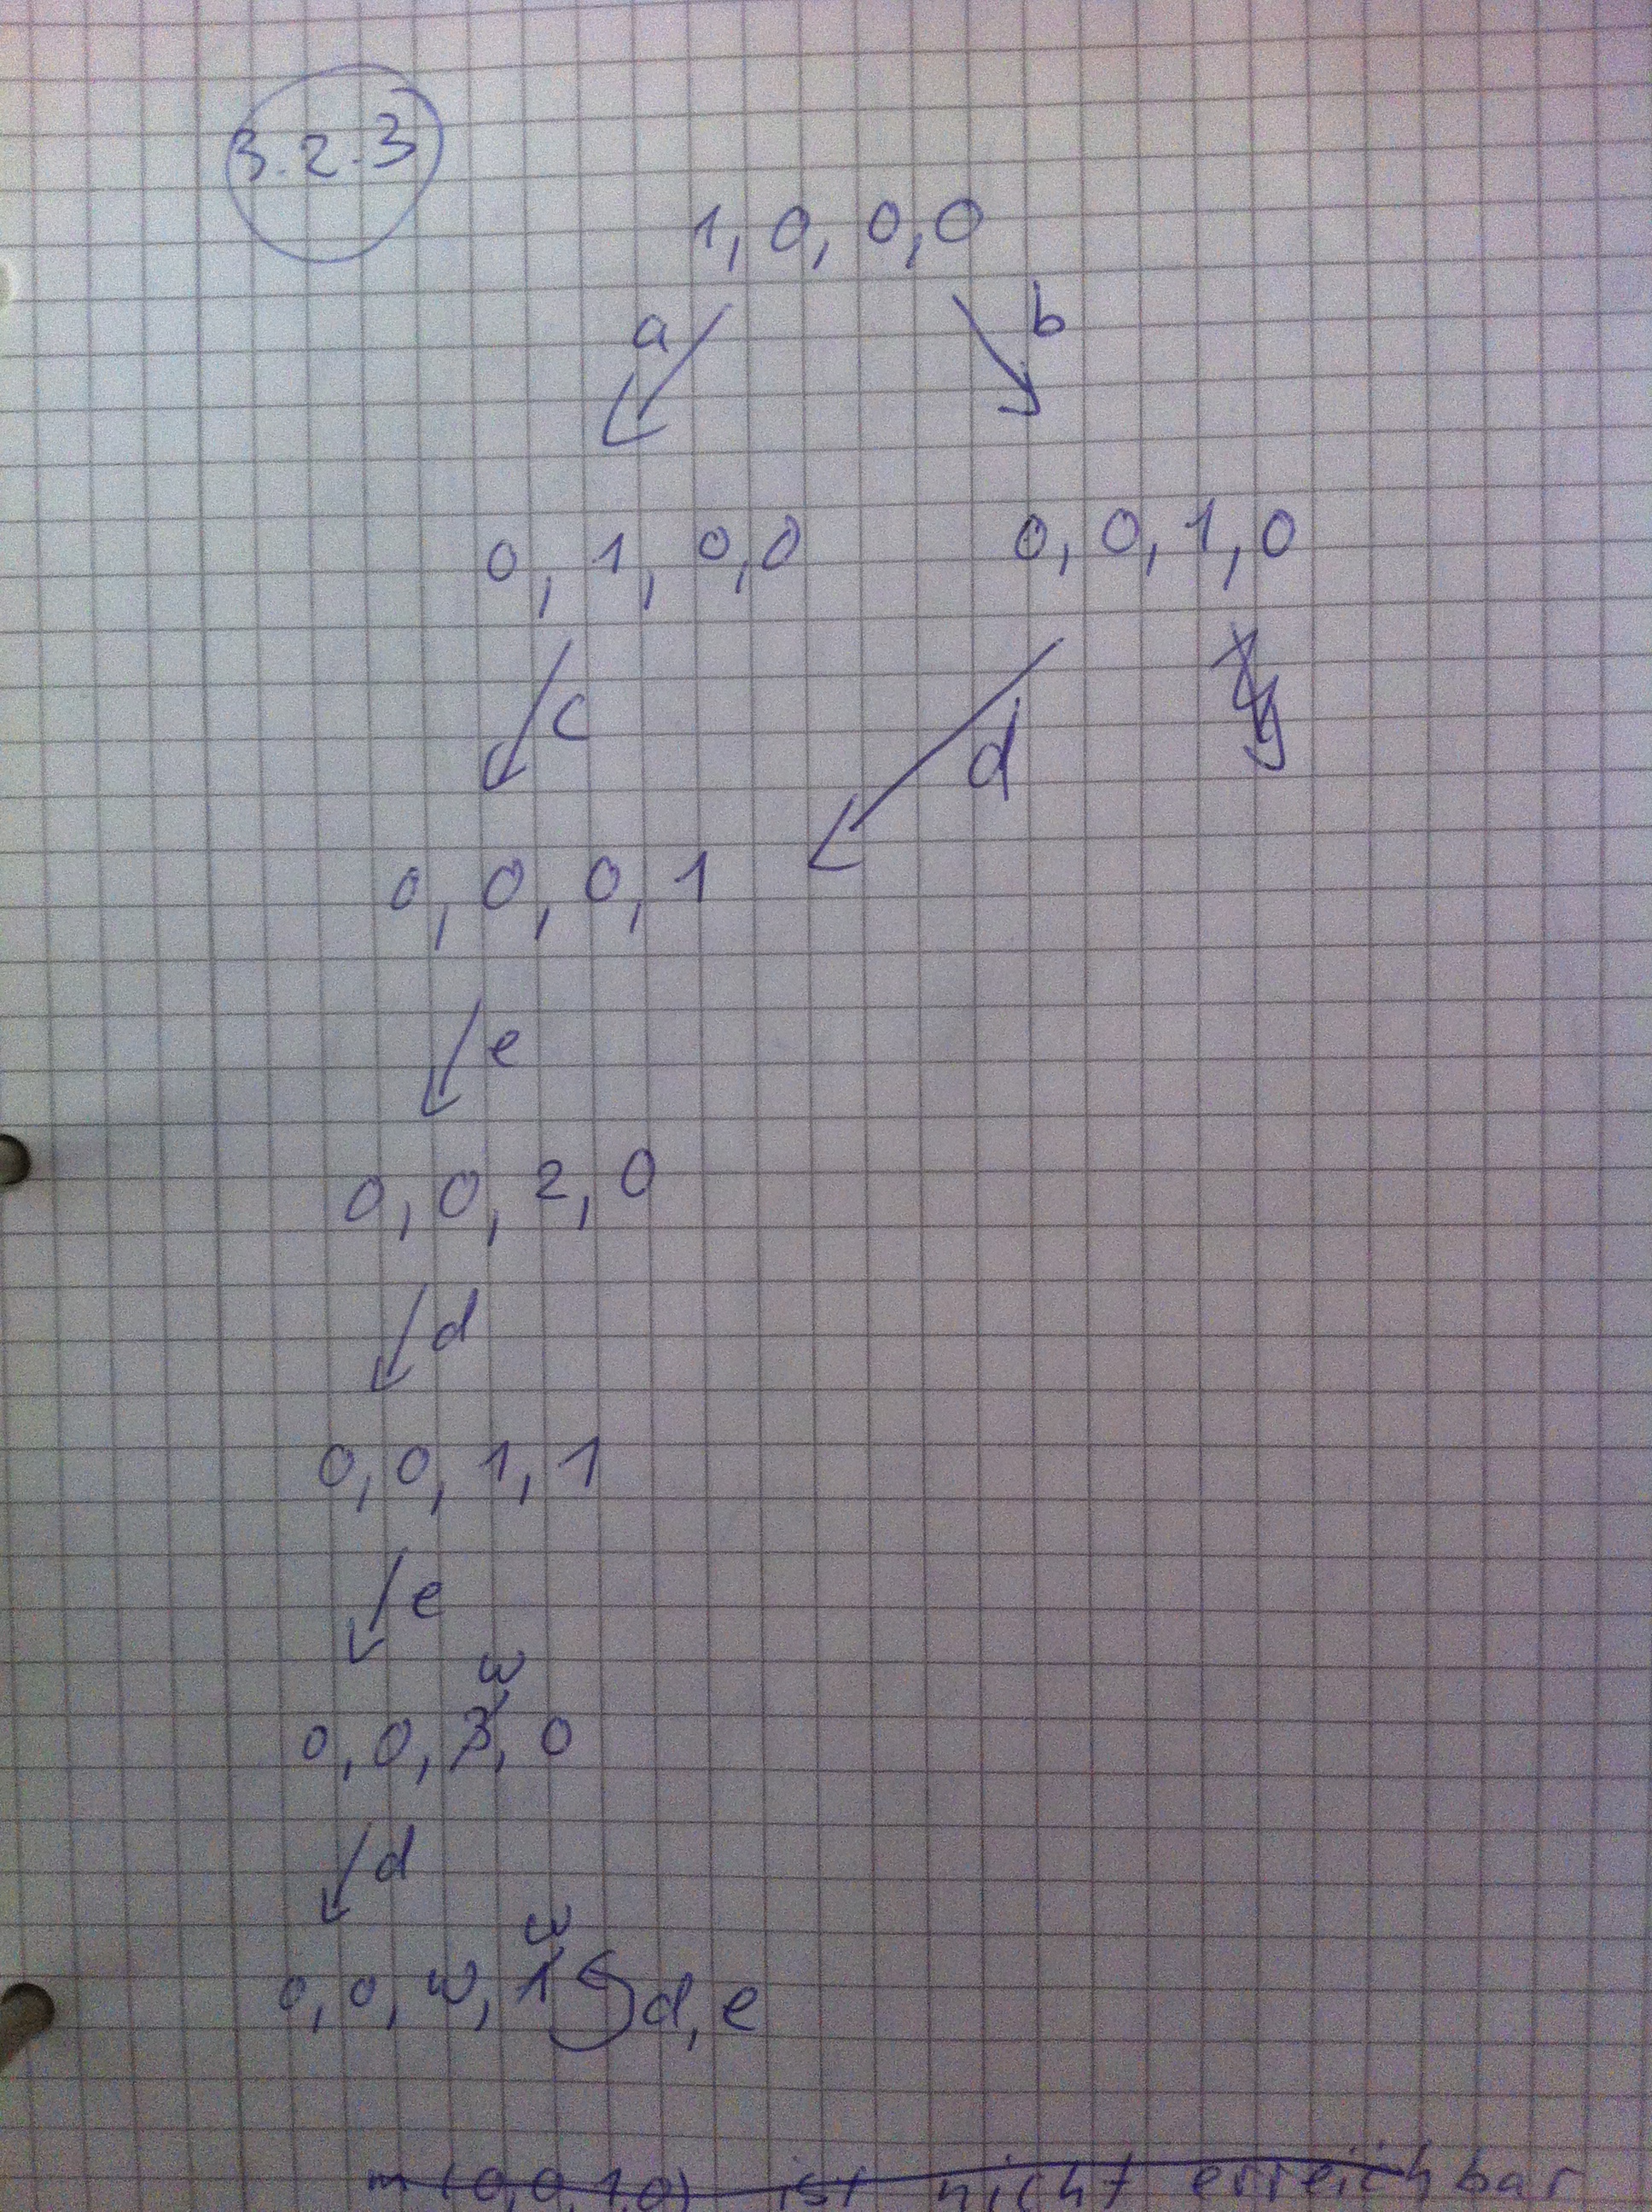 3.2.3
1, 0, 0, 0
a b
0, 1, 0, 0 0, 0, 1, 0
c d
0, 0, 0, 1
e
0, 0, 2, 0
d
0, 0, 1, 1
e
ω
0, 0, 3, 0
d
ω
0, 0, ω, 1 d, e
m (0,0,1,0) ist nicht erreichbar